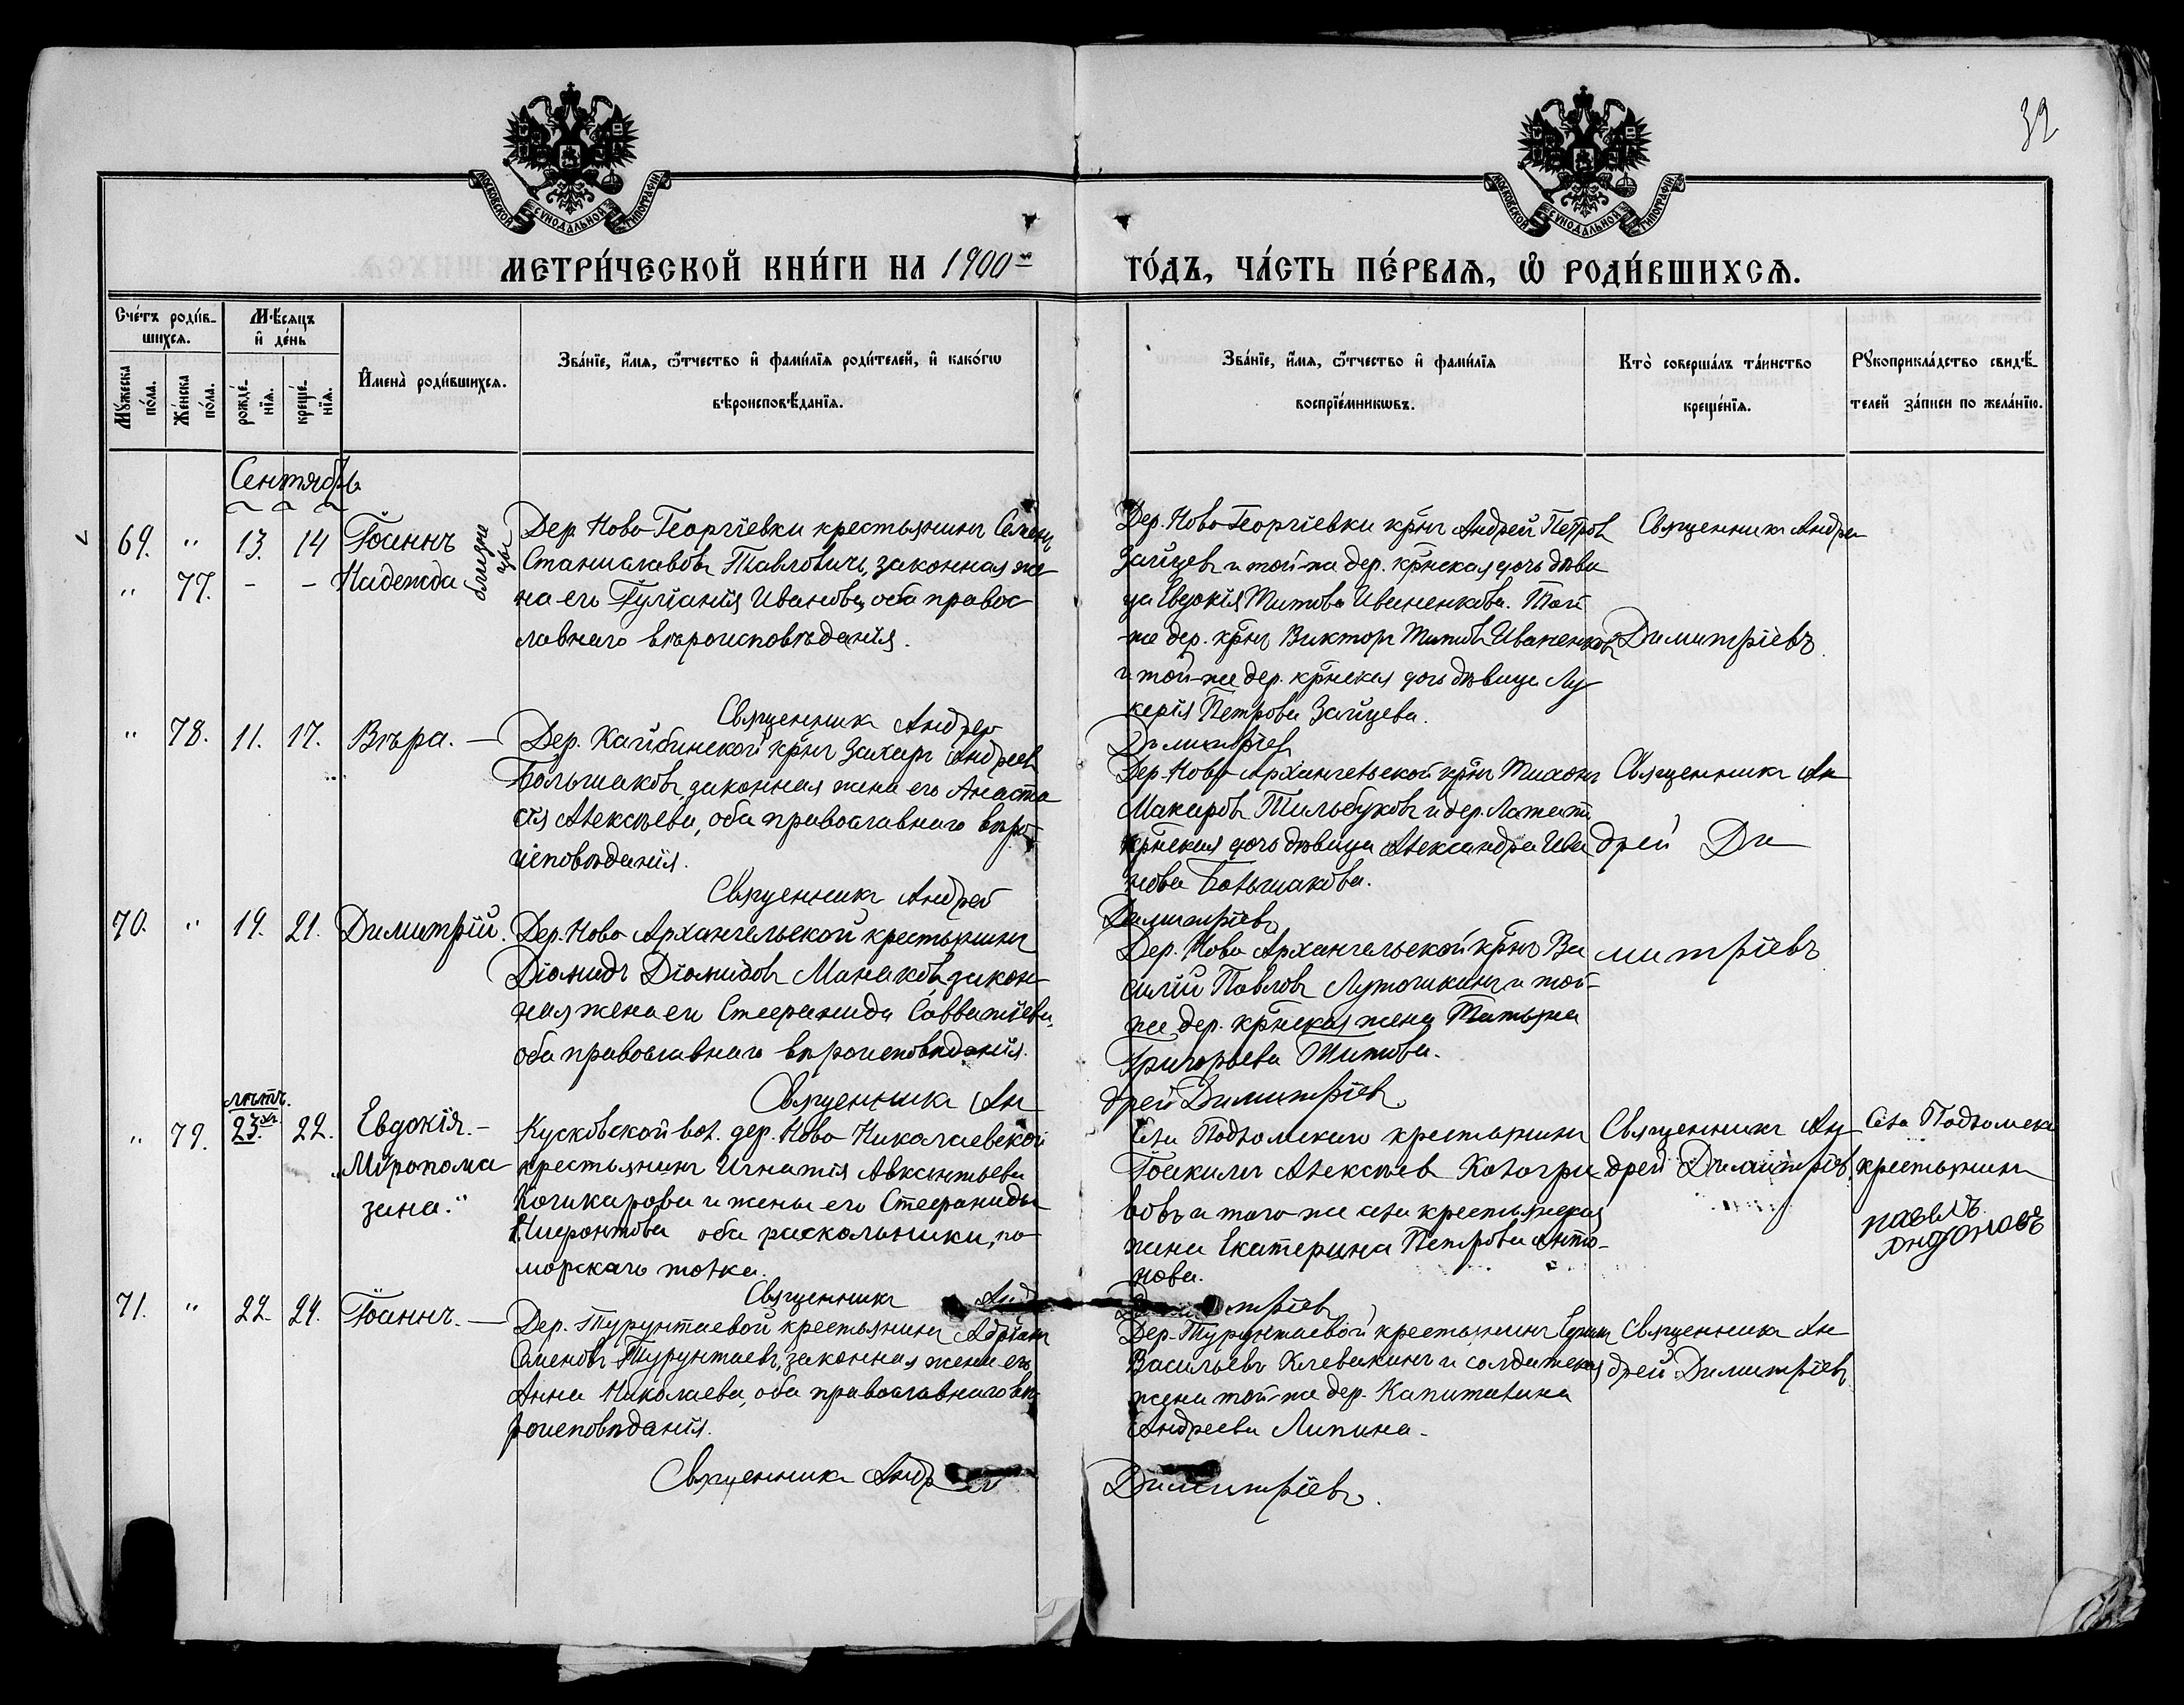 32
МОСКОВСКОЙ СУНОДАЛЬНОЙ ТИПОГРАФІИ
МОСКОВСКОЙ СУНОДАЛЬНОЙ ТИПОГРАФІИ
МЕТРИ́ЧЕСКОЙ КНИ́ГИ НА 1900-й
ГО́ДЪ, ЧА́СТЬ ПЕ́РВАѦ, Ѽ РОДИ́ВШИХСѦ.
Сче́тъ роди́в-
шихсѧ.
Мѣ́сѧцъ
и҆ де́нь
Мꙋ́жеска
по́ла.
Же́нска
по́ла.
рожде́-
нїѧ.
креще́-
нїѧ.
И҆мена̀ роди́вшихсѧ.
Зва́нїе, и҆́мѧ, ѻ҆́тчество и҆ фами́лїѧ роди́телей, и҆ како́гѡ
вѣроисповѣ́данїѧ.
Зва́нїе, и҆́мѧ, ѻ҆́тчество и҆ фами́лїѧ
воспрїе́мникѡвъ.
Кто̀ соверша́лъ та́инство
креще́нїѧ.
Рꙋкоприкла́дство свидѣ́-
телей за́писи по жела́нїю.
Сентябрь
69. " 13. 14 Іоаннъ
" 77. - - Надежда
близне
цы
Дер. Ново-Георгіевки крестьянинъ Семенъ
Станиславовъ Павловичъ, законная же
на его Іуліанія Иванова, оба правос
лавнаго вѣроисповѣданія.
Дер. Ново Георгіевки кр̃нъ Андрей Петров
Зайцевъ и той-же дер. кр̃нская дочь дѣви
ца Евдокія Титова Иваненкова. Той
же дер. кр̃нъ Викторъ Титовъ Иваненковъ
и той-же дер. кр̃нская дочь дѣвица Лу
керія Петрова Зайцева.
Священникъ Андрей
Димитріевъ
Священникъ Андрей
Димитріевъ
" 78. 11. 17. Вѣра. —
Дер. Кайбинской кр̃нъ Захаръ Андреев
Большаковъ, законная жена его Анаста
сія Алексѣева, оба православнаго вѣро-
исповѣданія.
Дер. Ново Архангельской кр̃нъ Тихонъ
Макаровъ Тильбуковъ и дер.
кр̃нская дочь дѣвица Александра Ива
нова Большакова.
Священникъ Ан
дрей Ди
митріевъ
Священникъ Андрей
Димитріевъ
70. " 19. 21. Димитрій.
Дер. Ново Архангельской крестьянинъ
Діомидъ Діомидовъ Манаковъ, закон-
ная жена его Стефанида Савватіева,
оба православнаго вѣроисповѣданія.
Дер. Ново Архангельской кр̃нъ Ва
силій Павловъ Лутошкинъ и той-
же дер. кр̃нская жена Татьяна
Григорьева Титова.
Священникъ Ан
дрей Димитріевъ
лѣтъ.
" 79. 23-хъ 22. Евдокія. -
"Мѵропома
зана."
Кусковской вол. дер. Ново-Николаевской
крестьянина Игнатія Авксентьева
Кочкарова и жены его Стефаниды
Ниифонтовы оба раскольники, по-
морскаго толка.
Села Подломскаго крестьянинъ
Іоакимъ Алексѣев Кологри
вовъ и того-же села крестьянская
жена Екатерина Петрова Анто-
нова.
Священникъ Ан
дрей Димитріев.
Села Подломска
крестьянинъ
павелъ
Антоновъ
Священникъ Анд
Димитріевъ
71. " 22. 24. Іоаннъ. —
Дер. Турунтаевой крестьянинъ Адріанъ
Семеновъ Турунтаевъ, законная жена его
Анна Николаева, оба православнаго вѣ-
роисповѣданія.
Дер. Турунтаевой крестьянинъ
Васильевъ Клевакинъ и солдатская
жена той-же дер. Капитолина
Андреева Липина.
Священникъ Ан
дрей Димитріевъ
Священникъ Андрей
Димитріевъ.